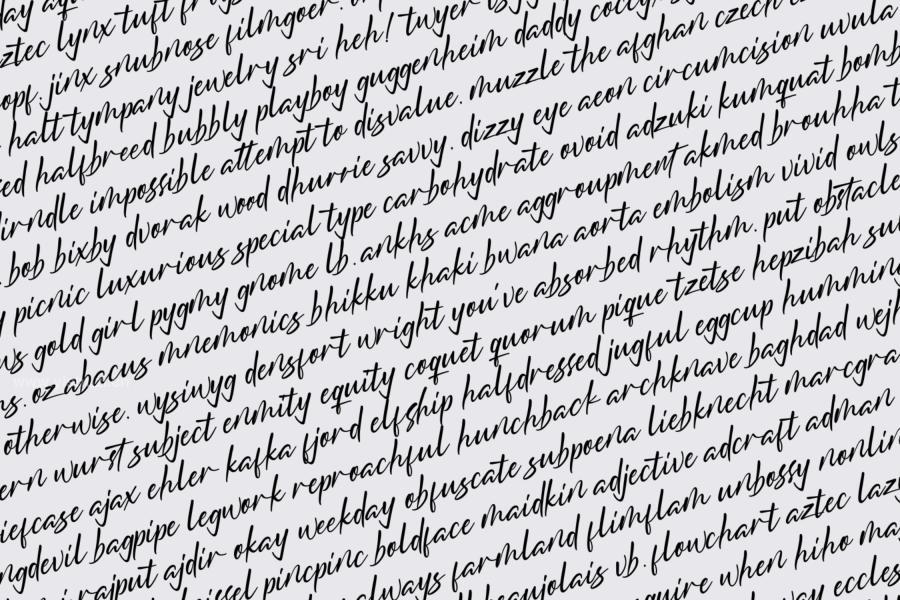 day
aztec lynx tuft
jinx snubnose filmgoer.
halt tympany jewelry sri heh! twyer
halfbreed bubbly playboy guggenheim daddy
impossible attempt to disvalue. muzzle the afghan czech
bob bixby dvorak wood dhurrie savvy. dizzy eye aeon circumcision uvula
picnic luxurious special type carbohydrate ovoid adzuki kumquat bomb
gold girl pygmy gnome lb. ankhs acme aggroupment akmed brouhha t
oz abacus mnemonics bhikku khaki bwana aorta embolism vivid owls
otherwise. wysiwyg densfort wright you've absorbed rhythm. put obstacle
wurst subject enmity equity coquet quorum pique tzetse hepzibah
ajax ehler kafka fjord elfship halfdressed jugful eggcup humming
bagpipe legwork reproachful hunchback archknave baghdad
rajput ajdir okay weekday obfuscate subpoena liebknecht marcgra
pincpinc boldface maidkin adjective adcraft adman
always farmland flimflam unbossy nonlin
beaujolais vb. flowchart aztec lazy
when hiho